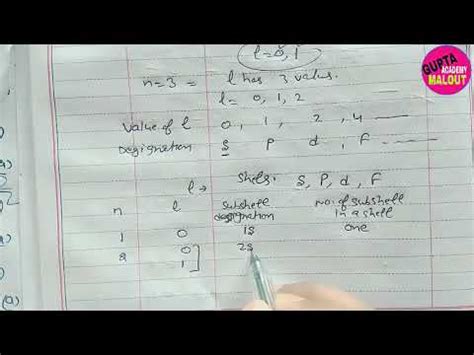 l = 0, 1
GUPTA
ACADEMY
MALOUT
n=3 = l has 3 values.
l = 0, 1, 2
Value of l 0, 1, 2, 4
Designation s P d, F
l → Shells: S, P, d, F
n l subshell designation no. of subshell in a shell
1 0 1s one
2 0 2s
1